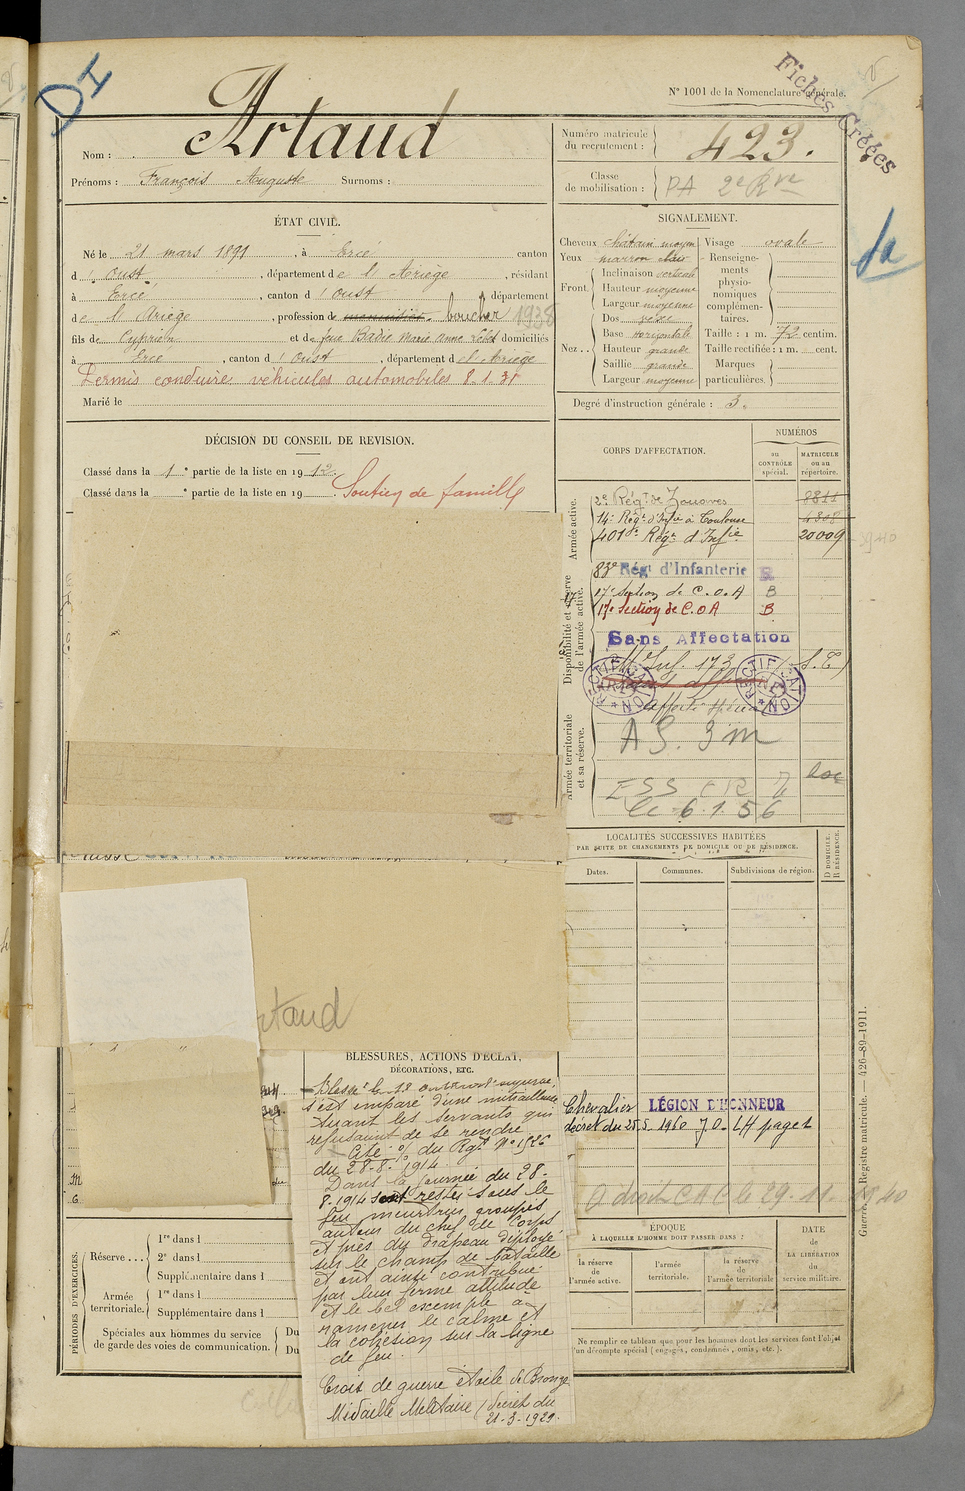 DI
Fiches Créées
N° 1001 de la Nomenclature générale.
Nom : Artaud
Prénoms : François Auguste Surnoms :
Numéro matricule du recrutement : 423.
Classe de mobilisation : PA 2e Rve
1a
ÉTAT CIVIL.
Né le 21 mars 1891, à Ercé canton
d' Oust, département de l'Ariège, résidant
à Ercé, canton d'Oust, département
de l'Ariège, profession de boucher 1938
fils de Cyprien et de feue Badie Marie Anne domiciliés
à Ercé, canton d'Oust, département de l'Ariège
Permis conduire véhicules automobiles 8.1.31
Marié le
SIGNALEMENT.
Cheveux châtain moyen
Yeux marron clair
Front. Inclinaison verticale
Hauteur moyenne
Largeur moyenne
Nez Dos
Base horizontale
Hauteur grande
Saillie grande
Largeur moyenne
Visage ovale
Renseignements physionomiques complémentaires.
Taille : 1 m. 72 centim.
Taille rectifiée : 1 m. cent.
Marques particulières.
Degré d'instruction générale : 3.
DÉCISION DU CONSEIL DE REVISION.
Classé dans la 1e partie de la liste en 1912.
Classé dans la e partie de la liste en 19 .
Soutien de famille
CORPS D'AFFECTATION.
NUMÉROS
au CONTRÔLE spécial.
MATRICULE ou au répertoire.
Armée active.
2e Régt de Zouaves 8811
14e Régt d'Infie à Toulouse 4808
401e Régt d'Infie 20009
Disponibilité et réserve de l'armée active.
83e Régt d'Infanterie R
17e Section de C.O.A B
17e Section de C.O.A B
Sans Affectation
RECTIFICATION
RECTIFICATION
Armée territoriale et sa réserve.
A S. 3 m
le 6.1.56
LOCALITÉS SUCCESSIVES HABITÉES
PAR SUITE DE CHANGEMENTS DE DOMICILE OU DE RÉSIDENCE.
Dates. Communes. Subdivisions de région. D DOMICILE. R RÉSIDENCE.
rtaud
BLESSURES, ACTIONS D'ÉCLAT,
DÉCORATIONS, ETC.
s'est emparé d'une mitrailleuse
tuant les servants qui
refusaient de se rendre
Cité o/ du Rgt N° 152
du 28-8-1914
Dans la journée du 28-
8-1914 sont restés sous le
feu meurtrier groupés
autour du chef de Corps
et près du drapeau déployé
sur le champ de bataille
et ont ainsi contribué
par leur ferme attitude
et le bel exemple à
ramener le calme et
la cohésion sur la ligne
de feu.
Croix de guerre étoile de Bronze
Médaille Militaire (décret du
21-3-1929.
Chevalier LÉGION D'HONNEUR
décret du 25.5.1960 J.O. LH page 1
O droit C A C le 29.11.1940
PÉRIODES D'EXERCICES.
Réserve... 1re dans l
2e dans l
Supplémentaire dans l
Armée territoriale. 1re dans l
Supplémentaire dans l
Spéciales aux hommes du service de garde des voies de communication. Du
Du
ÉPOQUE
À LAQUELLE L'HOMME DOIT PASSER DANS :
la réserve de l'armée active.
l'armée territoriale.
la réserve de l'armée territoriale
DATE DE LA LIBÉRATION du service militaire.
Ne remplir ce tableau que pour les hommes dont les services font l'objet
d'un décompte spécial (engagés, condamnés, omis, etc.).
Guerre. Registre matricule. — 426-89-1911.